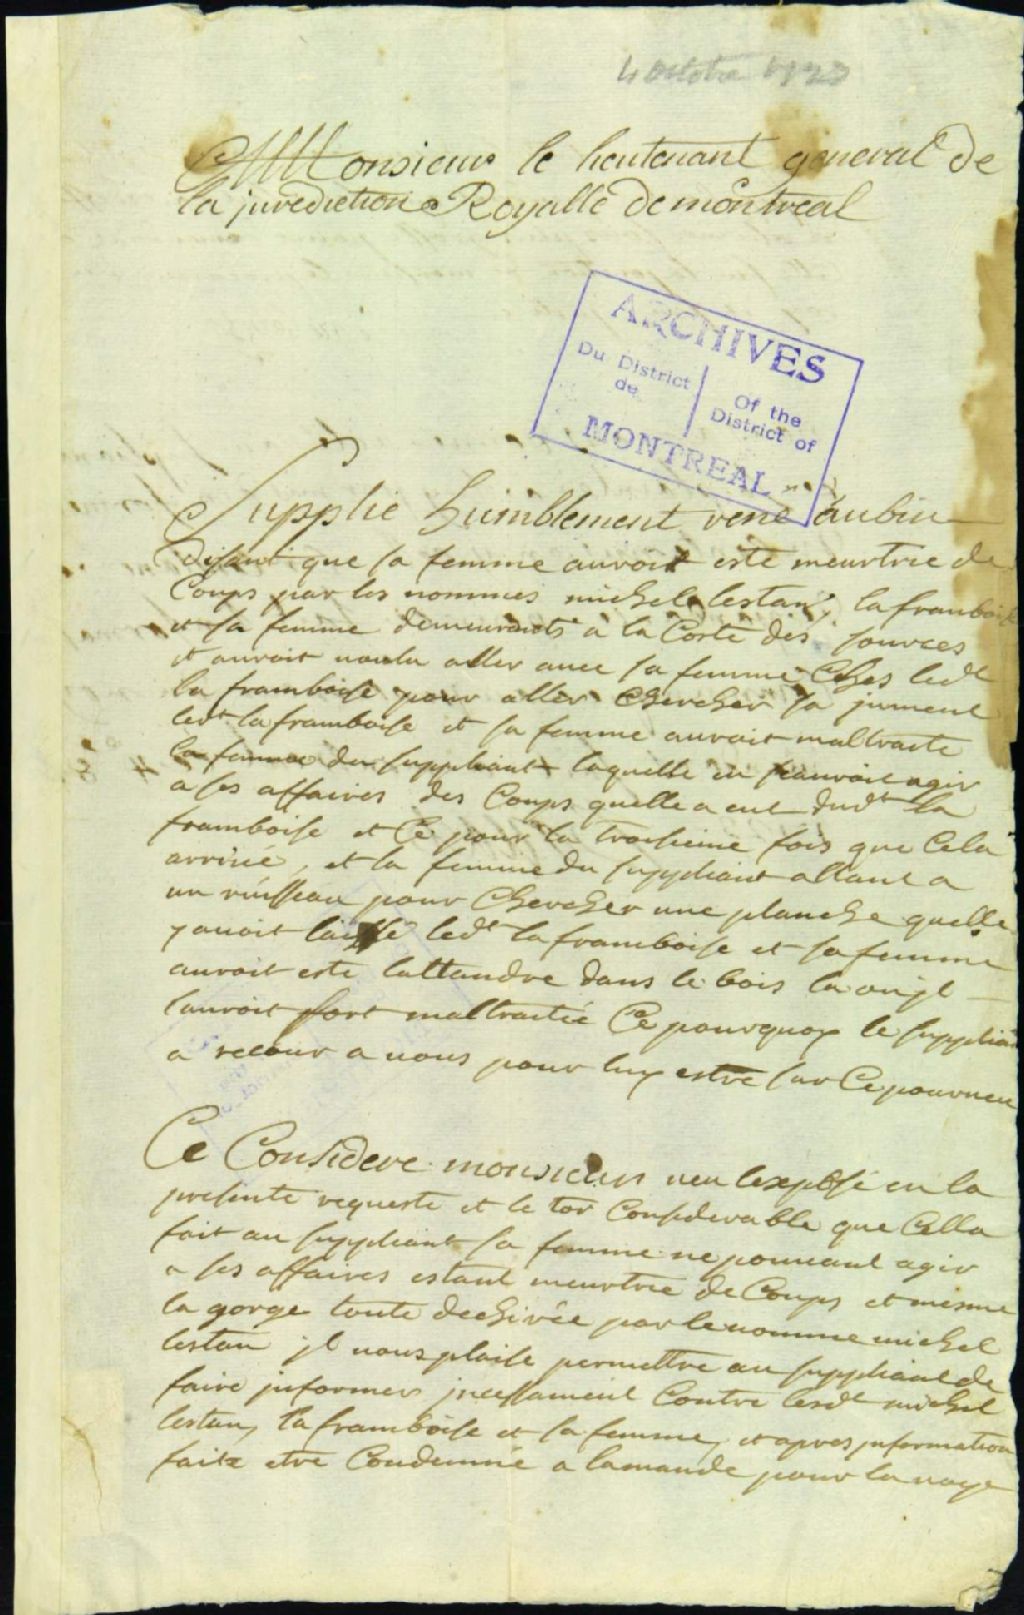 4 octobre
A Monsieur le lieutenant general de
la juredictione Royalle de montreal
ARCHIVES
Du District
de
Of the
District of
MONTREAL
Supplie humblement rene aubin
disant que sa femme auroit esté meurtrie de
Coups par les nommes michel lestan, la framboise
et sa femme demeurants a la Coste des sources
et auroit voulu aller avec sa femme Ches ledt
la framboise pour aller chercher sa jument
ledt la framboise et sa femme auroit maltraite
la femme du suppliant laquelle ne pauroit agir
a ses affaires des Coups quelle a eut dudt la
framboise et Ce pour la troisieme fois que Cela
arrivé, et la femme du suppliant allant a
un ruisseau pour Chercher une planche quelle
y avoit laissé ledt la framboise et sa femme
auroit esté lattandre dans le bois la ou jl
lauroit fort maltraitée Ce pourquoy le suppliant
a recour a vous pour luy estre sur Ce pourveu
Ce Consideré monsieur veu lexposé en la
presente requeste et le tor Considerable que Cella
fait au suppliant sa femme ne pouvant agir
a ses affaires estant meurtrie de Coups et mesme
la gorge toute dechirée par le nomme michel
lestan jl vous plaise permettre au suppliant de
faire jnformer jncessament Contre lesdt michel
lestan, la framboise et sa femme, et apres jnformation
faite etre Condemné a lamande pour la voye